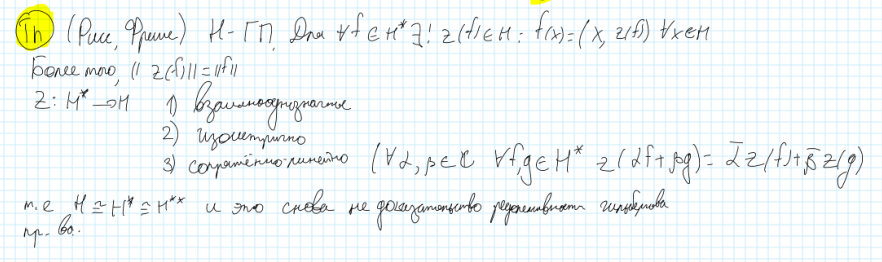 Th (Рисс, Фреше) H - ГП. Для ∀f ∈ H* ∃! z(f) ∈ H : f(x) = (x, z(f)) ∀x∈H
Более того, || z(f) || = ||f||
Z : H* → H 1) взаимнооднозначное
2) изометрично
3) сопряжённо-линейно (∀α, β ∈ ℂ ∀f,g ∈ H* z(αf + βg) = ᾱz(f) + β̄z(g)
т.е H ≅ H* ≅ H** и это снова не доказательство рефлексивности гильбертова
пр-ва.